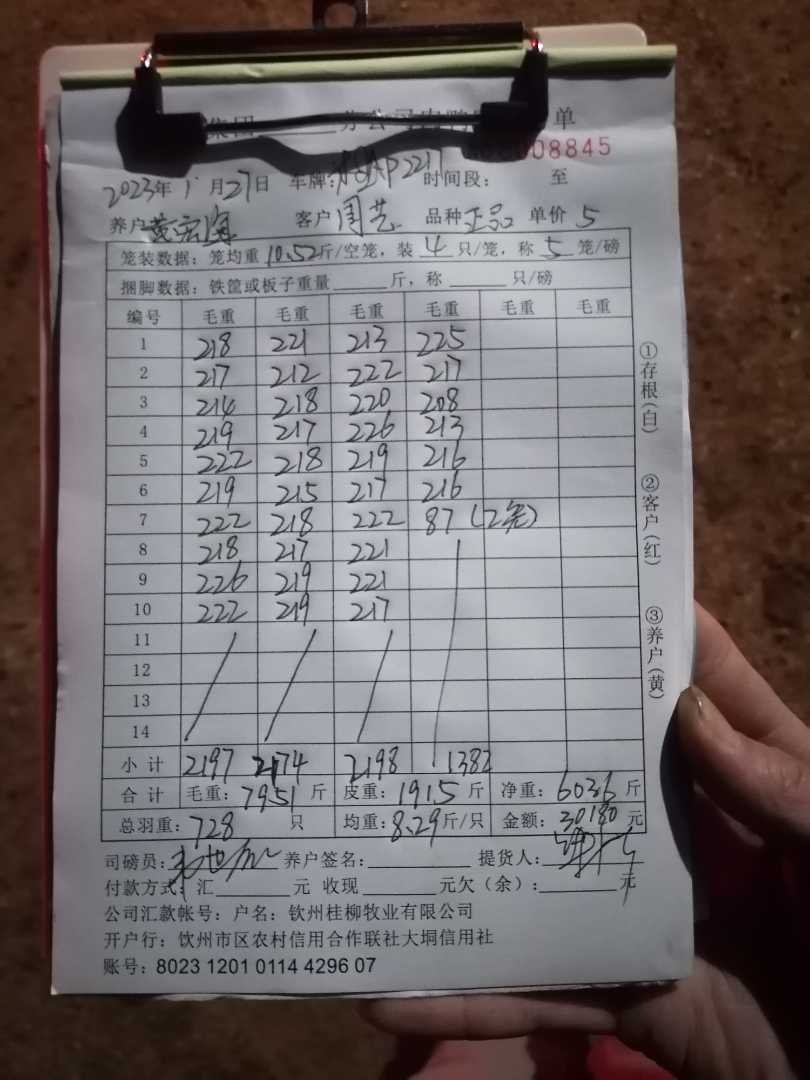 集团______分公司肉鸭 单
008845
2023年1月27日 车牌: 2217 时间段: 至
养户 黄宏海 客户 周艺 品种 正品 单价 5
笼装数据: 笼均重 10.52 斤/空笼, 装 4 只/笼, 称 5 笼/磅
捆脚数据: 铁筐或板子重量______斤, 称______只/磅
编号 毛重 毛重 毛重 毛重 毛重 毛重
1 218 221 213 225
2 217 212 222 217
3 214 218 220 208
4 219 217 226 213
5 222 218 219 216
6 219 215 217 216
7 222 218 222 87 (2笼)
8 218 217 221
9 226 219 221
10 222 219 217
11
12
13
14
小计 2197 2174 2198 1382
合计 毛重: 7951 斤 皮重: 1915 斤 净重: 6036 斤
总羽重: 728 只 均重: 8.29 斤/只 金额: 30180 元
司磅员: 养户签名:______ 提货人:
付款方式: 汇______元 收现______元欠(余):______元
公司汇款帐号: 户名: 钦州桂柳牧业有限公司
开户行: 钦州市区农村信用合作联社大垌信用社
账号: 8023 1201 0114 4296 07
①存根(白)
②客户(红)
③养户(黄)